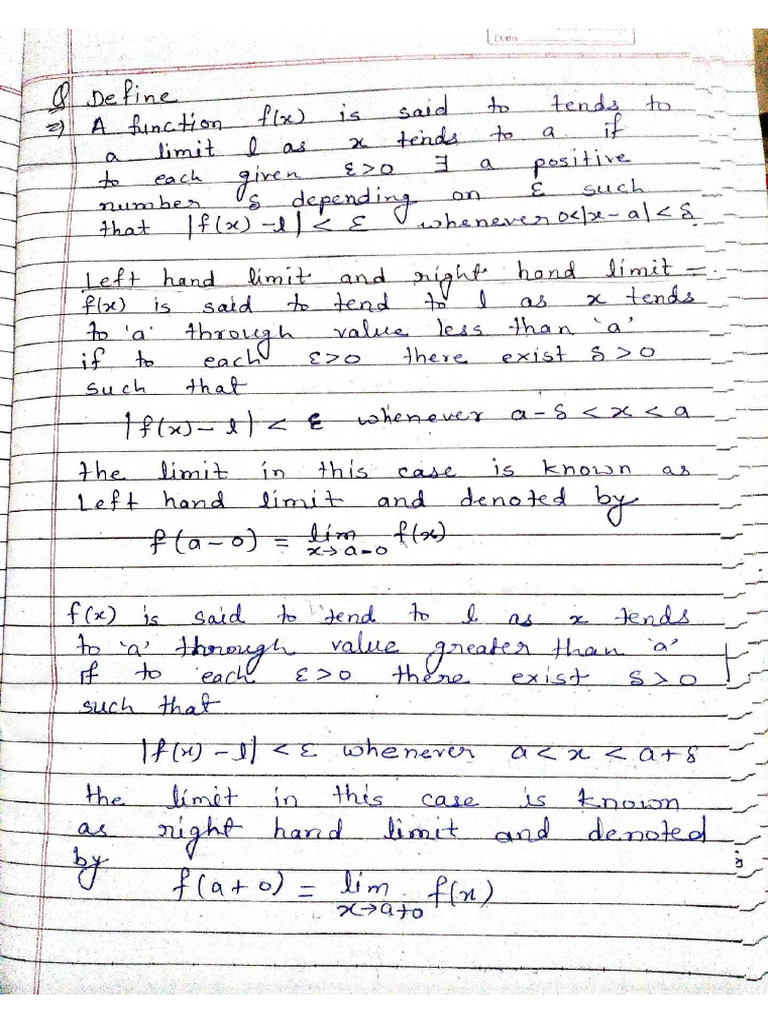 Data
Q Define
⇒) A function f(x) is said to tends to
a limit l as x tends to a if
to each given ε>0 ∃ a positive
number δ depending on ε such
that |f(x)-l| < ε whenever 0<|x-a|<δ
Left hand limit and right hand limit =
f(x) is said to tend to l as x tends
to 'a' through value less than 'a'
if to each ε>0 there exist δ>0
such that
|f(x)-l| < ε whenever a-δ<x<a
the limit in this case is known as
Left hand limit and denoted by
f(a-0) = lim f(x)
x→a-0
f(x) is said to tend to l as x tends
to 'a' through value greater than 'a'
if to each ε>0 there exist δ>0
such that
|f(x)-l| < ε whenever a<x<a+δ
the limit in this case is known
as right hand limit and denoted
by
f(a+0) = lim f(x)
x→a+0